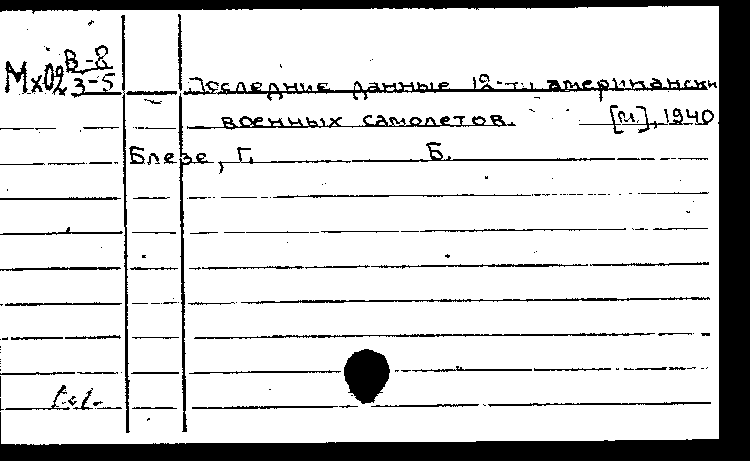 Мх02 В-8/3-5
Последние данные 12-ти американски
военных самолетов. [М.], 1940
Блезе, Г. Б.